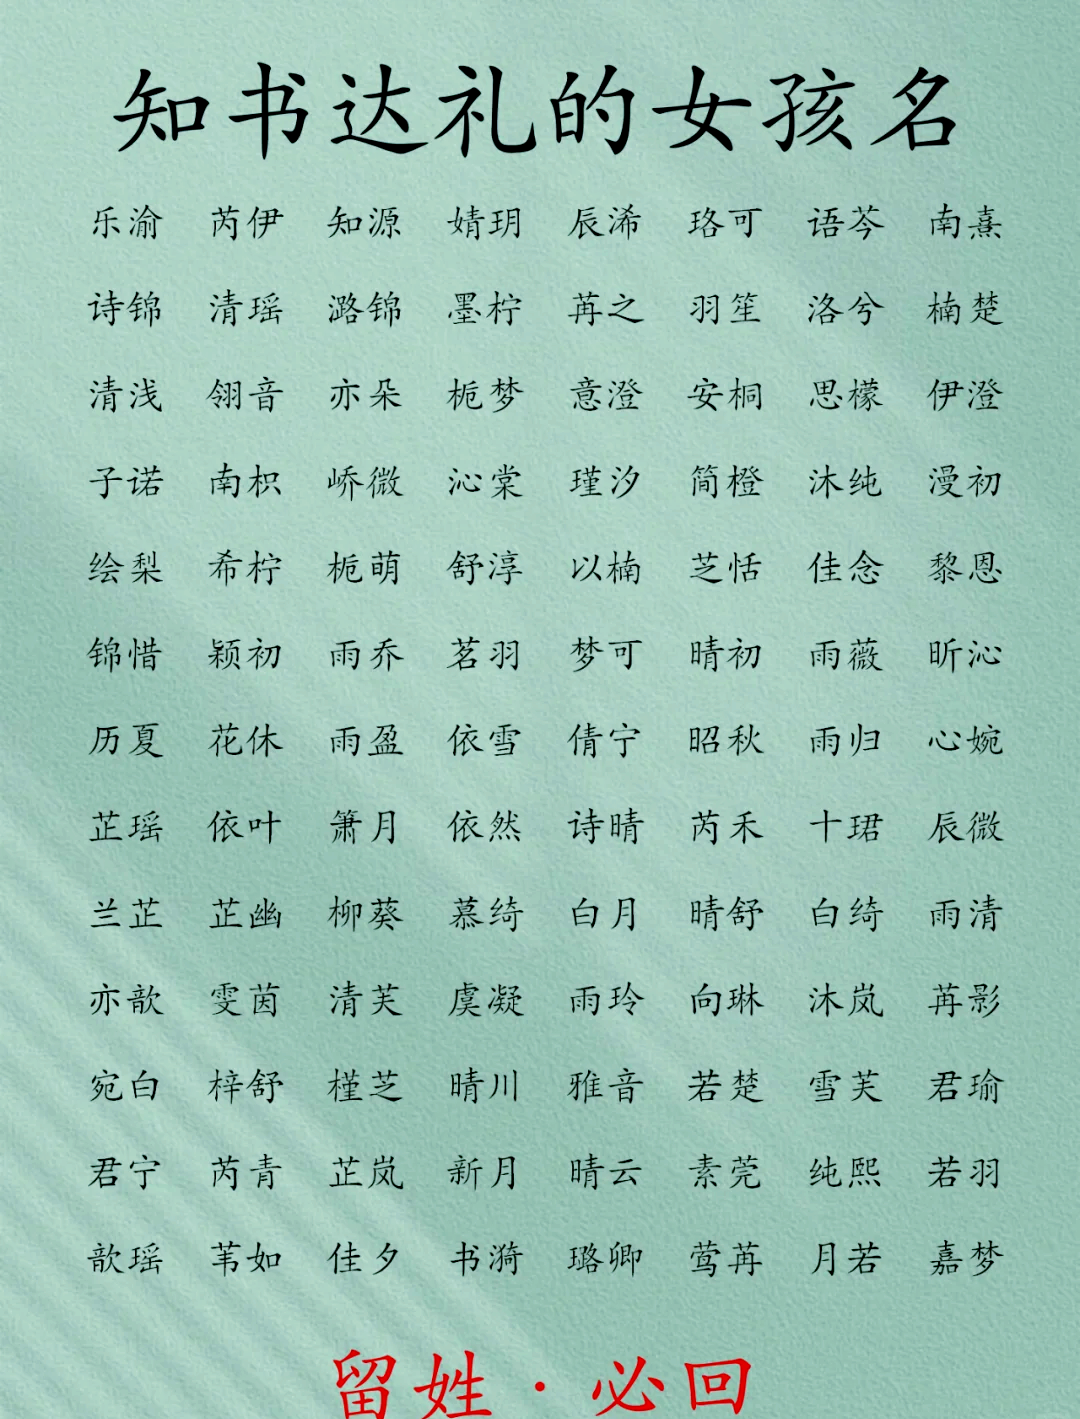 知书达礼的女孩名
乐渝 芮伊 知源 婧玥 辰浠 珞可 语芩 南熹
诗锦 清瑶 潞锦 墨柠 苒之 羽笙 洛兮 楠楚
清浅 翎音 亦朵 栀梦 意澄 安桐 思檬 伊澄
子诺 南枳 峤微 沁棠 瑾汐 简橙 沐纯 漫初
绘梨 希柠 栀萌 舒淳 以楠 芝恬 佳念 黎恩
锦惜 颖初 雨乔 茗羽 梦可 晴初 雨薇 昕沁
历夏 花休 雨盈 依雪 倩宁 昭秋 雨归 心婉
芷瑶 依叶 箫月 依然 诗晴 芮禾 十珺 辰微
兰芷 芷幽 柳葵 慕绮 白月 晴舒 白绮 雨清
亦歆 雯茵 清芙 虞凝 雨玲 向琳 沐岚 苒影
宛白 梓舒 槿芝 晴川 雅音 若楚 雪芙 君瑜
君宁 芮青 芷岚 新月 晴云 素莞 纯熙 若羽
歆瑶 苇如 佳夕 书漪 璐卿 莺苒 月若 嘉梦
留姓·必回